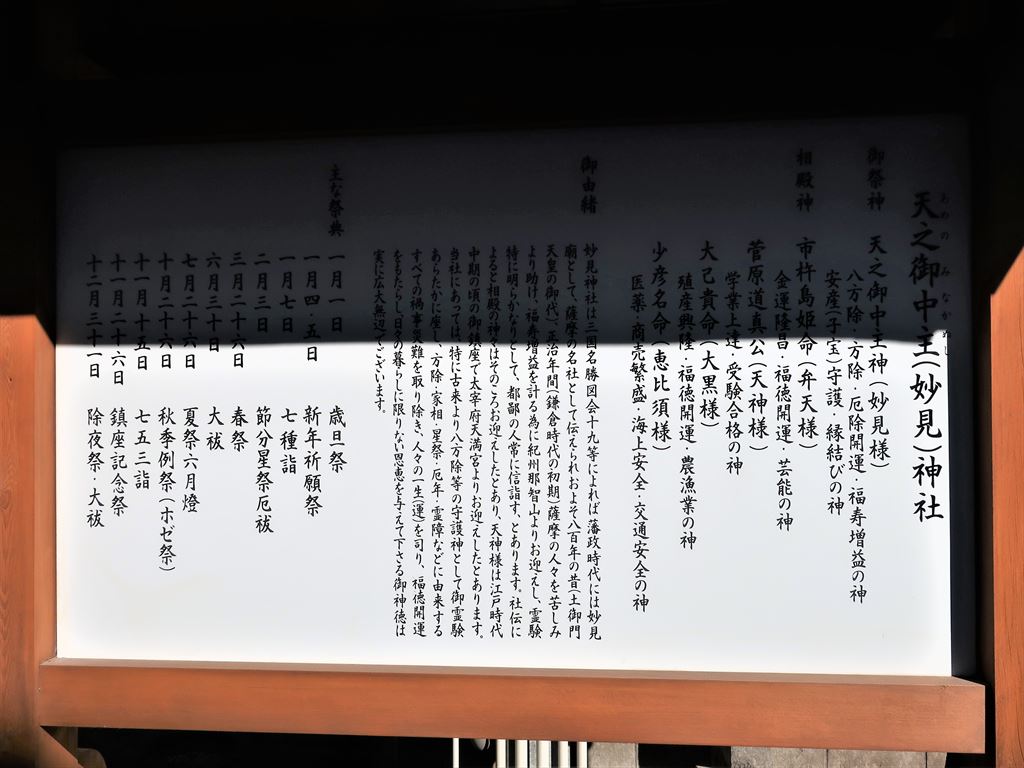 天之御中主(妙見)神社
あめのみなかぬし
御祭神 天之御中主神(妙見様)
八方除・方除・厄除開運・福寿増益の神
安産(子宝)守護・縁結びの神
相殿神 市杵島姫命(弁天様)
金運隆昌・福徳開運・芸能の神
菅原道真公(天神様)
学業上達・受験合格の神
大己貴命(大黒様)
殖産興隆・福徳開運・農漁業の神
少彦名命(恵比須様)
医薬・商売繁盛・海上安全・交通安全の神
御由緒
妙見神社は三国名勝図会十九等によれば藩政時代には妙見
廟として、薩摩の名社として伝えられおよそ八百年の昔(土御門
天皇の御代)正治年間(鎌倉時代の初期)薩摩の人々を苦しみ
より助け、福寿増益を計る為に紀州那智山よりお迎えし、霊験
特に明らかなりとして、都鄙の人常に信詣す、とあります。社伝に
よると相殿の神々はそのころお迎えしたとあり、天神様は江戸時代
中期の頃の御鎮座で太宰府天満宮よりお迎えしたとあります。
当社にあっては、特に古来より八方除等の守護神として御霊験
あらたかに座し、方除・家相・星祭・厄年・霊障などに由来する
すべての禍事災難を取り除き、人々の一生(運)を司り、福徳開運
をもたらし、日々の暮らしに限りない恩恵を与えて下さる御神徳は
実に広大無辺でございます。
主な祭典
一月一日 歳旦祭
一月四・五日 新年祈願祭
一月七日 七種詣
二月三日 節分星祭厄祓
三月二十六日 春祭
六月三十日 大祓
七月二十六日 夏祭六月燈
十月二十六日 秋季例祭(ホゼ祭)
十一月十五日 七五三詣
十一月二十六日 鎮座記念祭
十二月三十一日 除夜祭・大祓